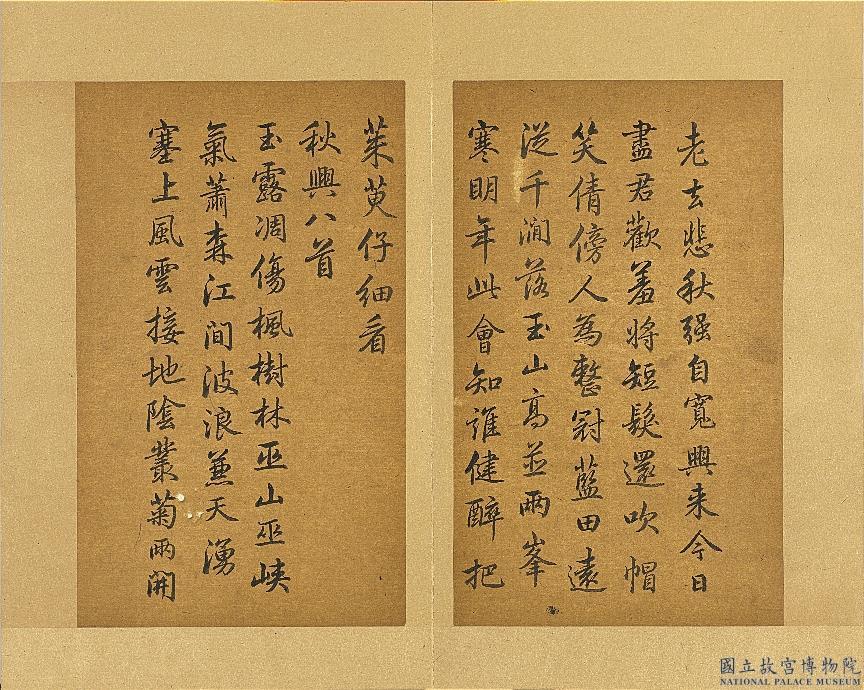 老去悲秋强自寬興来今日
盡君歡羞將短髮還吹帽
笑倩傍人為整冠藍田遠
從千澗落玉山高並兩峯
寒明年此會知誰健醉把
茱萸仔細看
秋興八首
玉露凋傷楓樹林巫山巫峽
氣蕭森江間波浪兼天湧
塞上風雲接地陰叢菊兩開
國立故宮博物院
NATIONAL PALACE MUSEUM